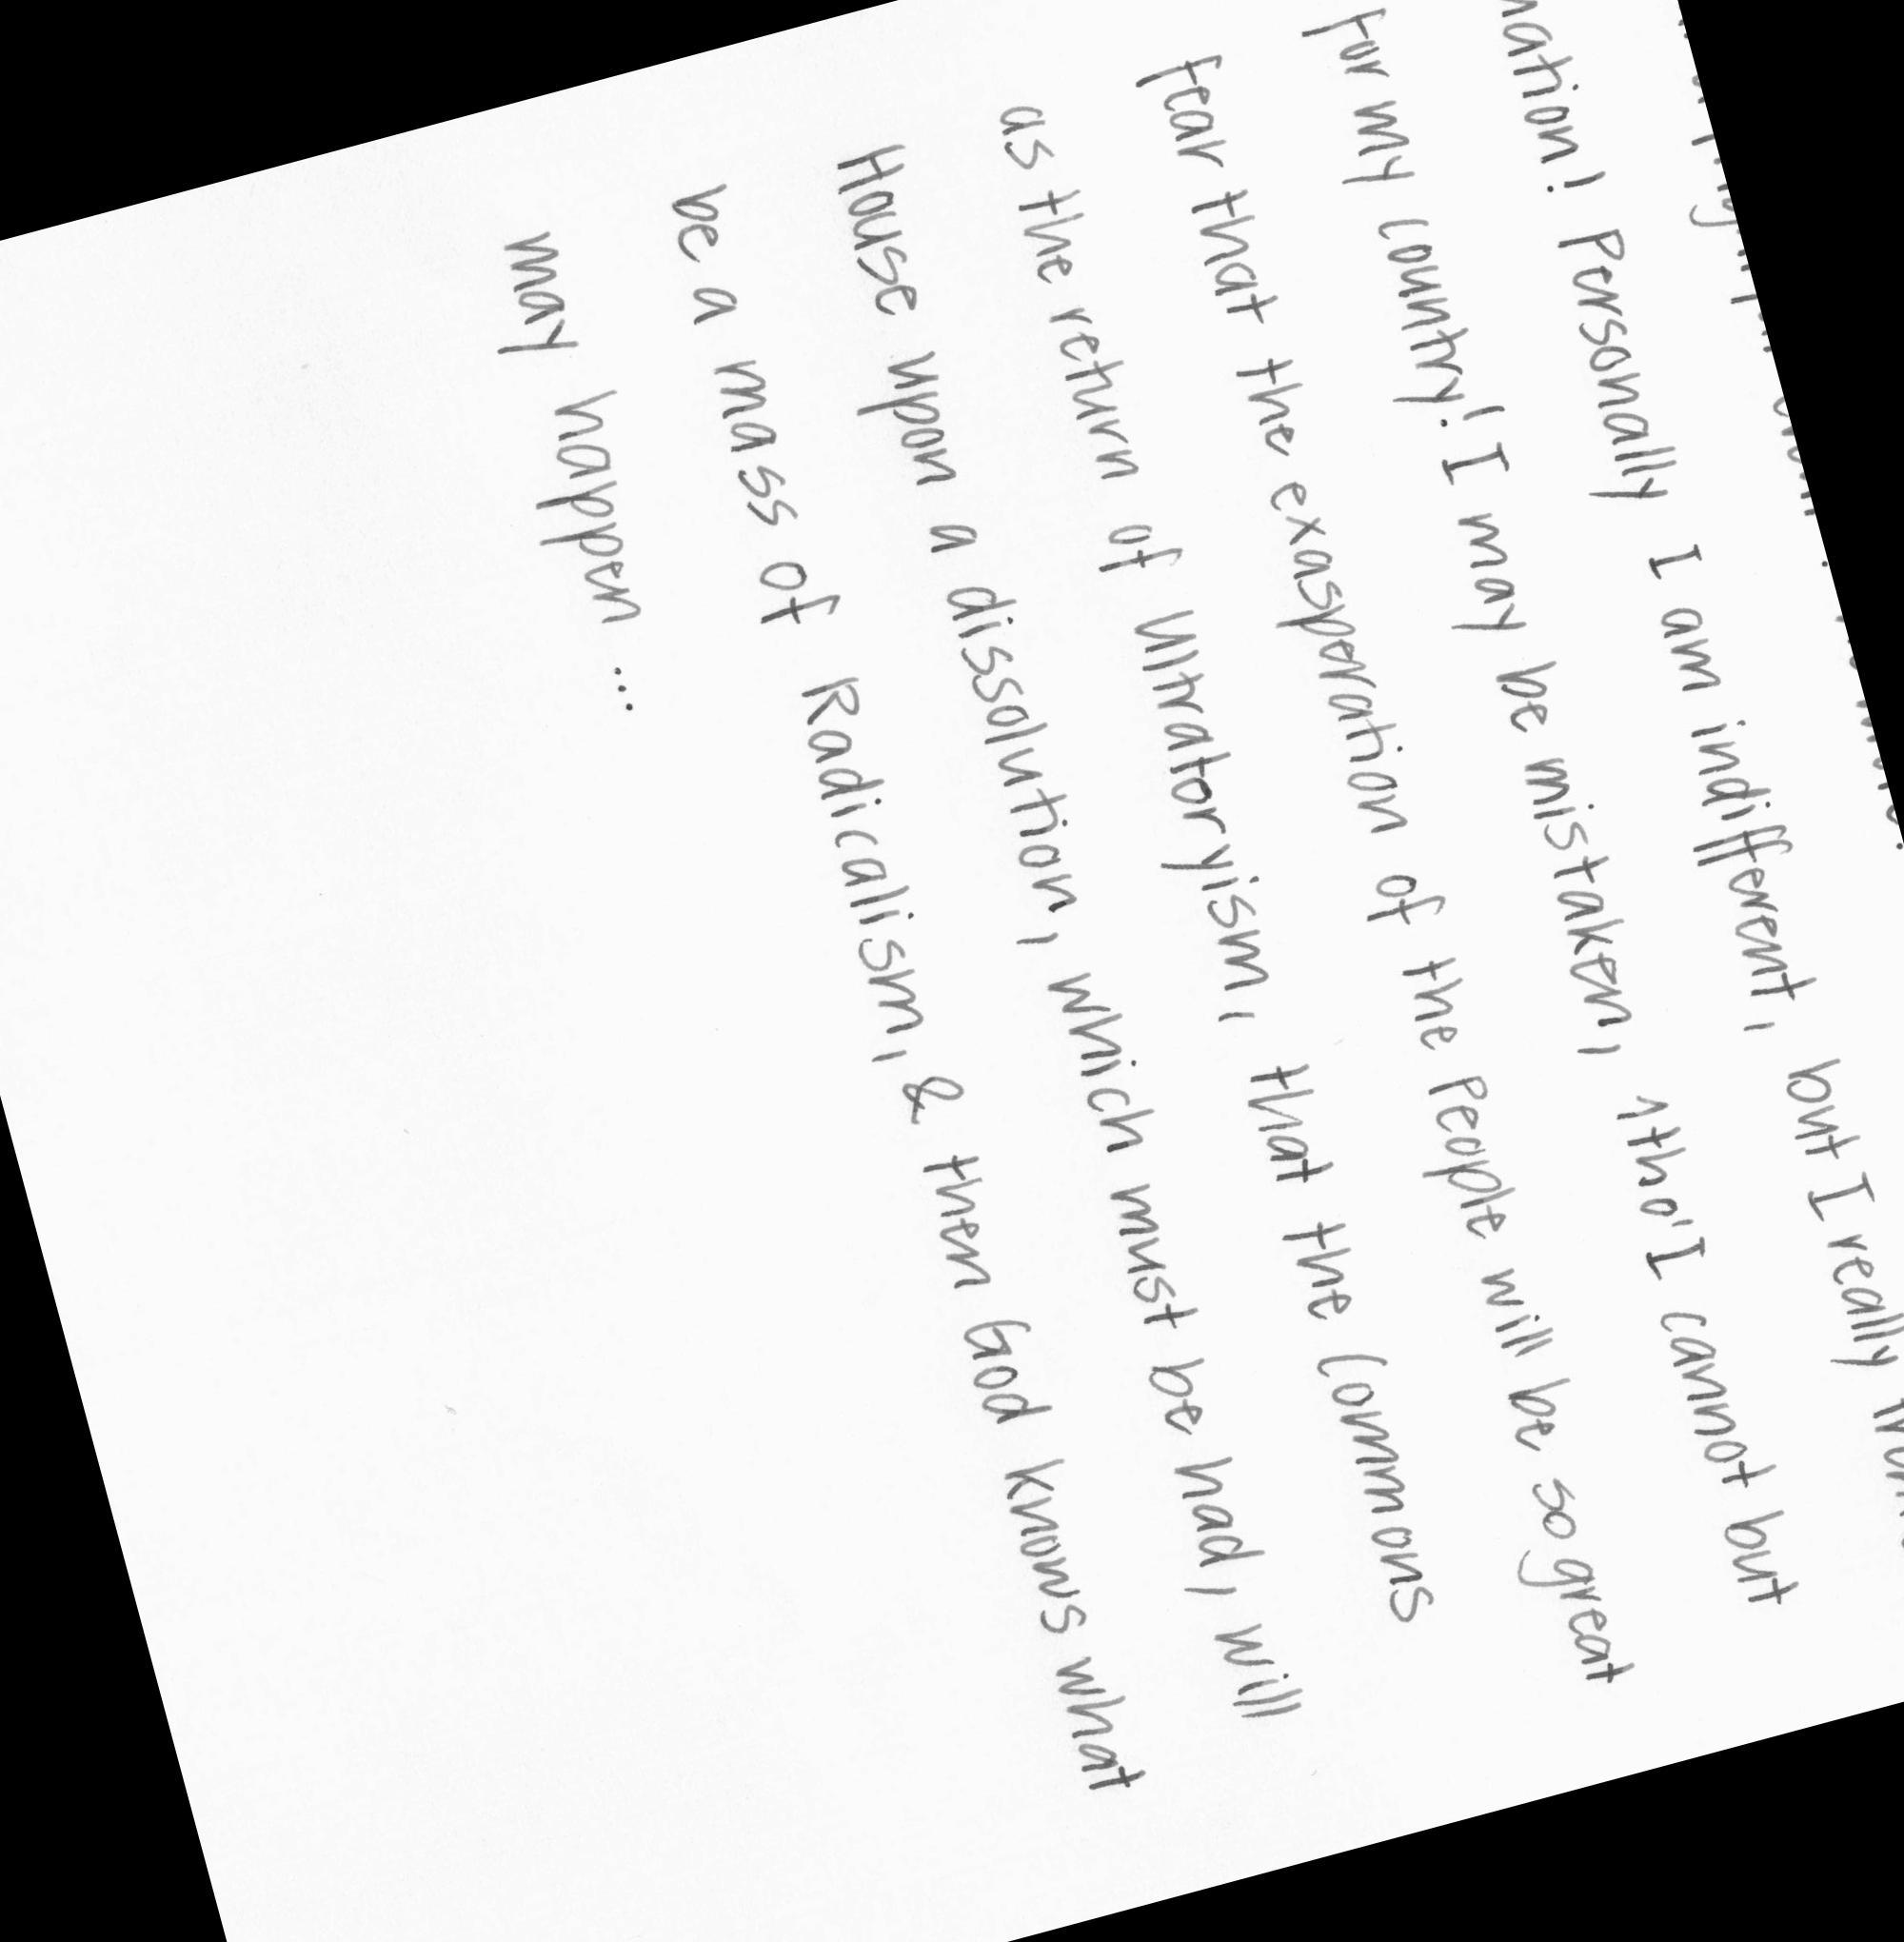 nation! Personally I am indifferent, but I really
for my country!! I may be mistaken, ^tho' I cannot but
fear that the exasperation of the People will be so great
as the return of Ultratoryism, that the Commons
House upon a dissolution, which must be had, will
be a mass of Radicalism, & then God knows what
may happen ...